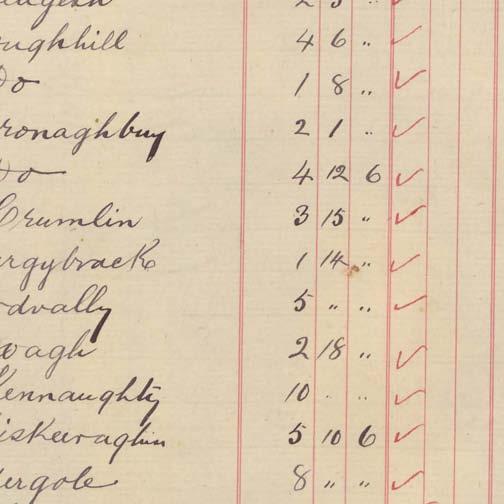 ughhill 4 6 ..
Do 1 8 ..
ronaghbuy 2 1 ..
Do 4 12 6
Crumlin 3 15 "
rgybrack 1 14 ..
dvally 5 " ..
wagh 2 18 ..
Kennaughty 10 . ..
iskeeraghin 5 10 6
ergole 8 " "